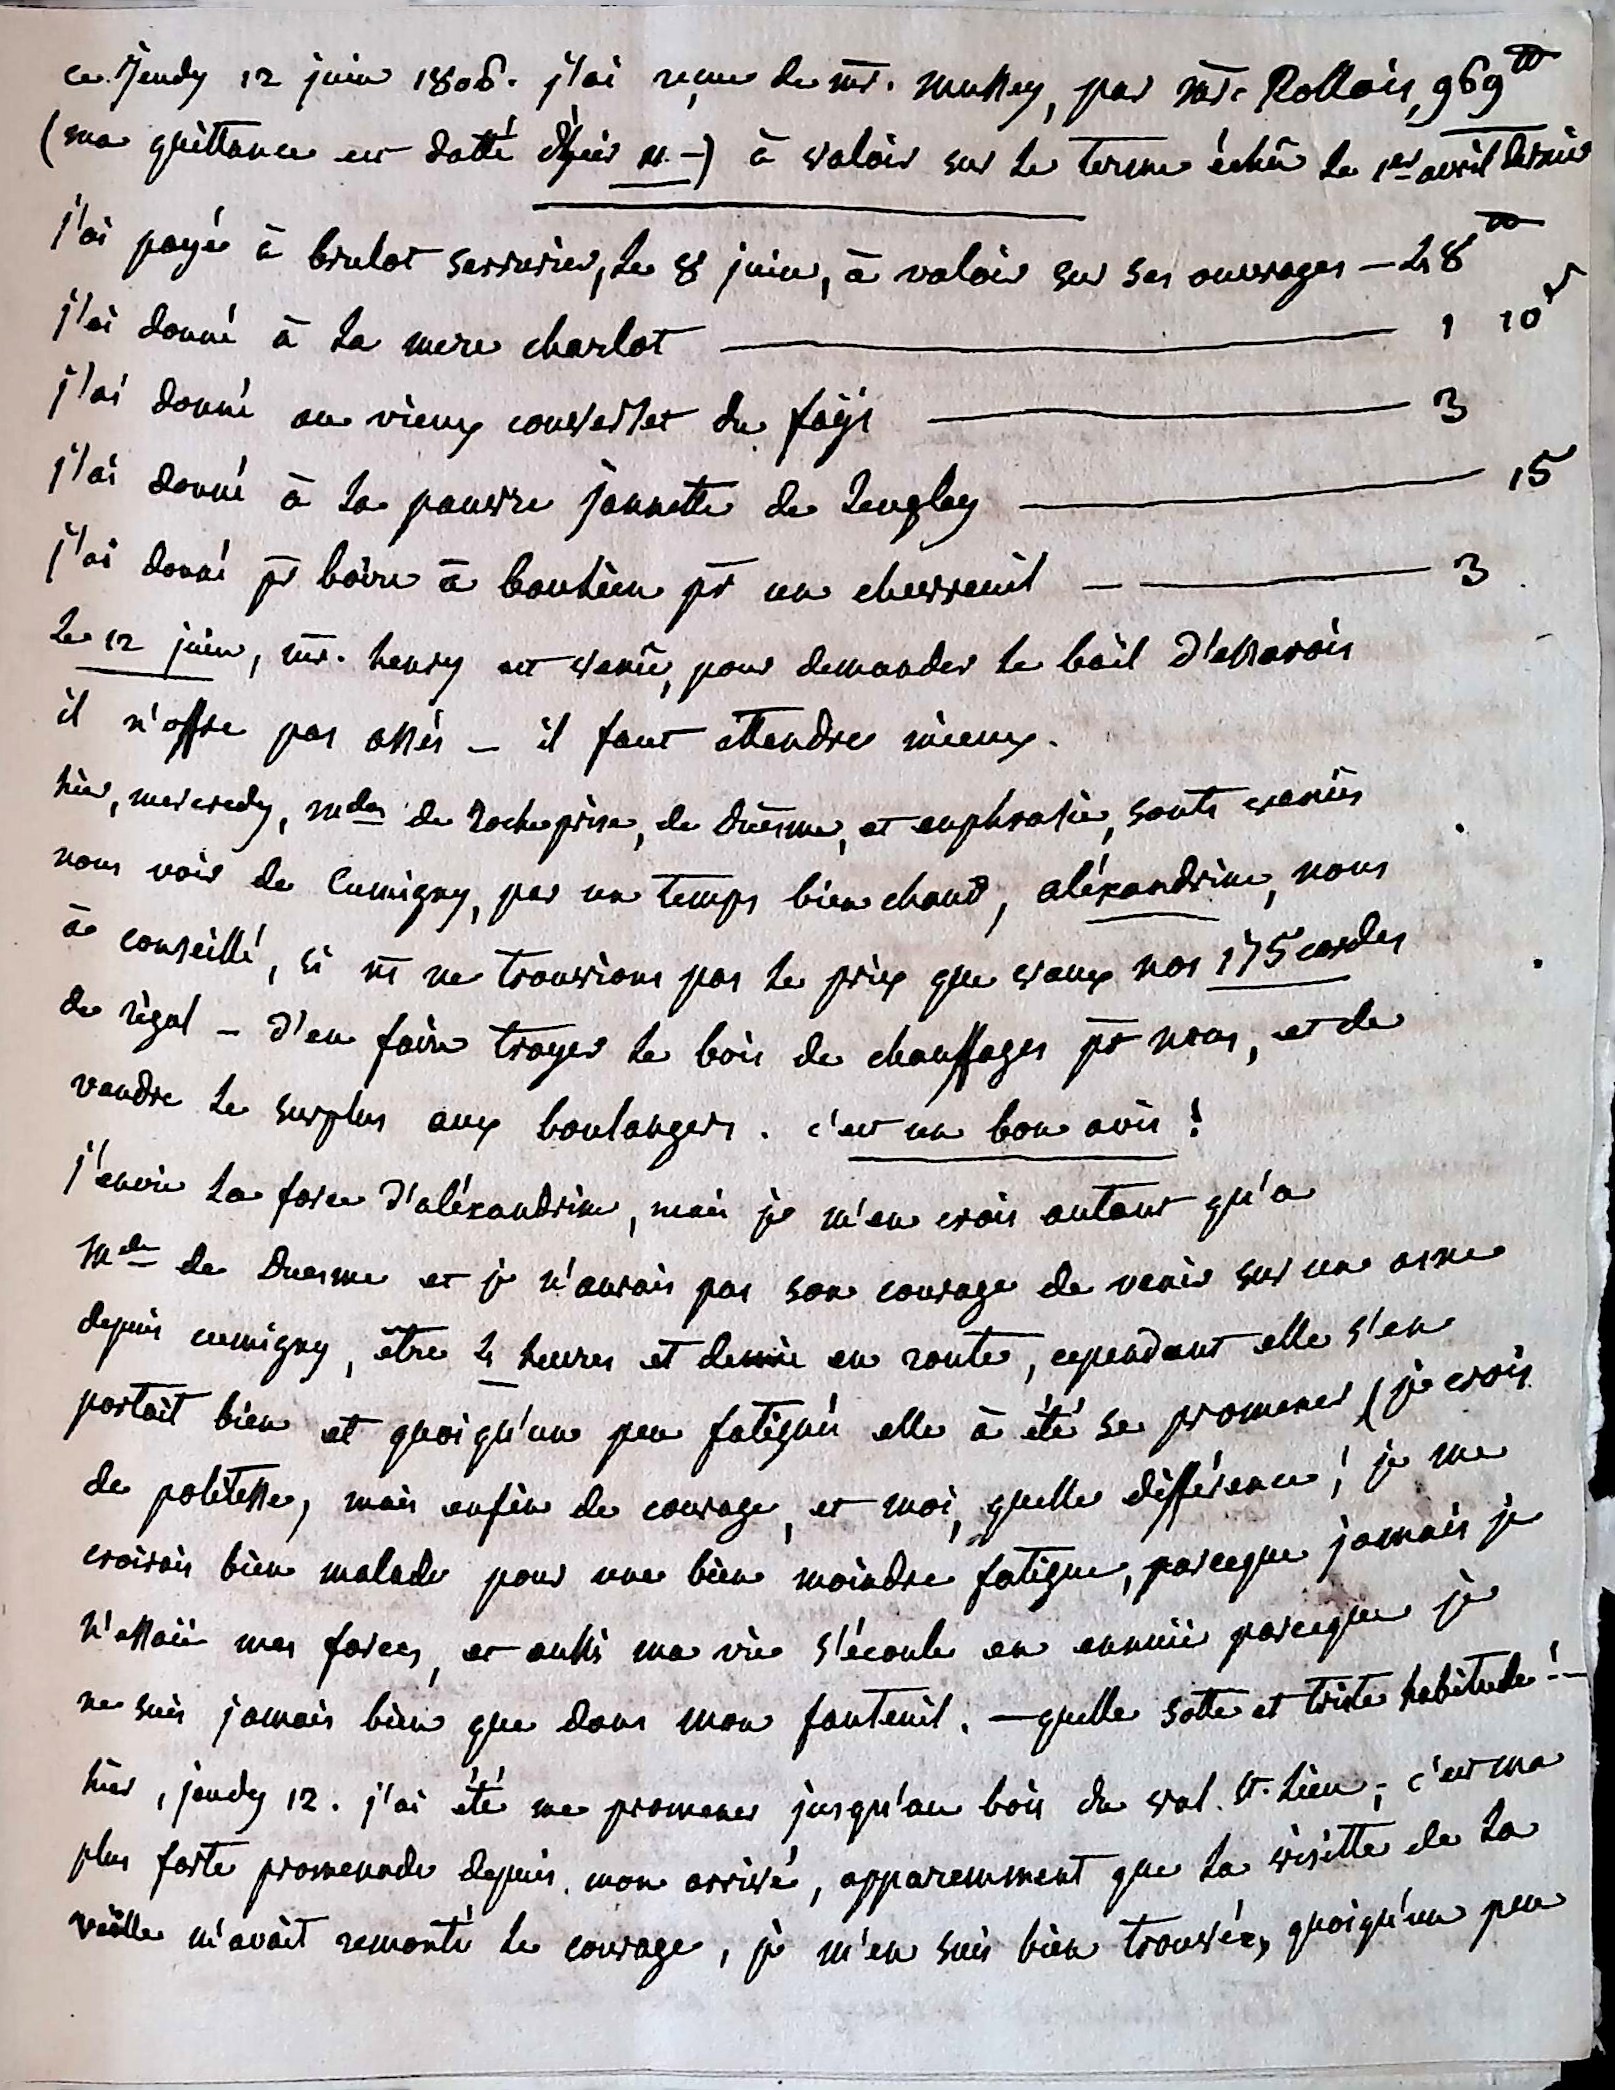 ce Jeudy 12 juin 1806. j'ai reçue de mr. mussey, par mr. Rollois, 969tt
(ma quittance est datté d'hjier 11 –) à valoir sur le terme échû le 1er avril dernier
j'ai payé à brulot serrurier, le 8 juin, à valoir sur ses ouvrages – 48tt
j'ai donné à la mere charlot — 1 10s
j'ai donné au vieux conseillet du faÿs — 3
j'ai donné à la pauvre jannette de leugley — 15
j'ai donné pr boire à bouhein pr un chevreuil — 3
Le 12 juin, mr. henry est venû, pour demander le bail d'essarois
il n'offre pas assés – il faut attendre mieux.
hier, mercredy, mdes de rocheprise, de duesme, et euphrasie, sonts venües
nous voir de Cumigny, par un temps bien chaud, aléxandrine, nous
à conseillé, si ns ne trouvions pas le prix que vaux nos 175 cordes
de régal – d'en faire trayer le bois de chauffages pr nous, et de
vandre le surplus aux boulangers. c'est un bon avis !
j'envie la force d'aléxandrine, mais je m'en crois autant qu'a
mde de Duesme et je n'aurais pas son courage de venir sur un asne
depuis cumigny, être 4 heures et demie en route, cependant elle s'en
portait bien et quoiqu'un peu fatiguée elle à été se promener (je crois
de politesse, mais enfin de courage, et moi, quelle différence ! je me
croirois bien malade pour une bien moindre fatigue, parceque jamais je
n'essaie mes forces, et aussi ma vie s'écoule en ennuie parceque je
ne suis jamais bien que dans mon fauteuil. – quelle sotte et triste habitude ! –
hier, jeudy 12. j'ai été me promener jusqu'au bois du val. st. lieu ; c'est ma
plus forte promenade depuis mon arrivé, apparemment que la visitte de la
veille m'avait remonté le courage, je m'en suis bien trouvée, quoiqu'un peu